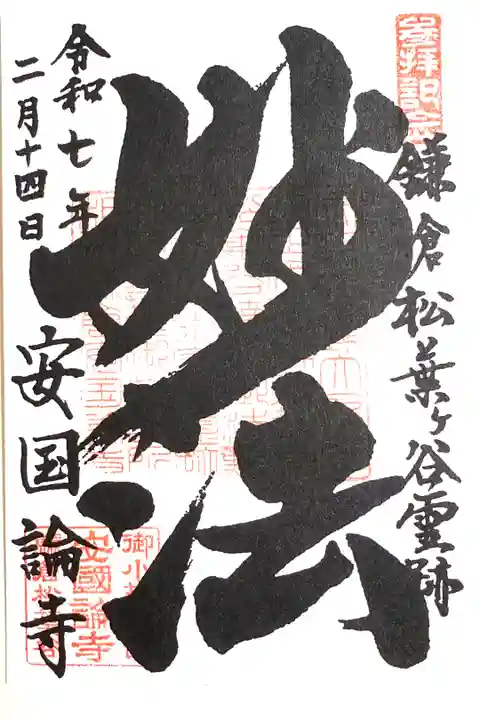 参拝記念
鎌倉松葉ヶ谷霊跡
妙法
令和七年
二月十四日
安国論寺
安國論寺
御小